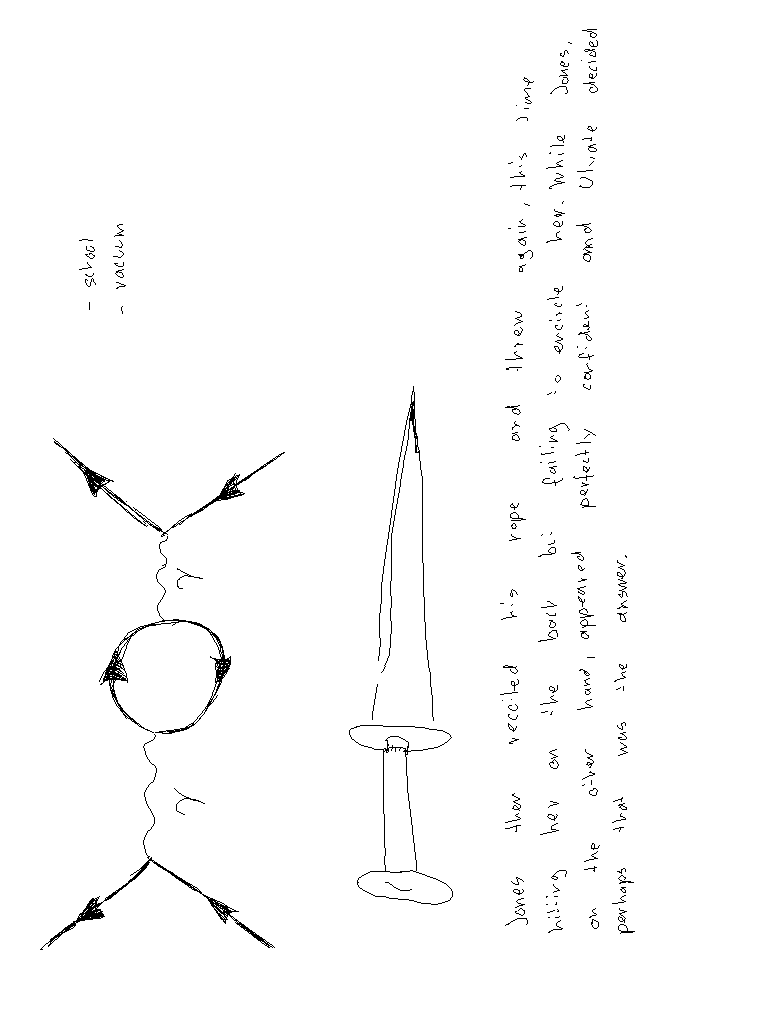 - school
- vacuum
γ
γ
Jones then recoiled his rope and threw again, this time
hitting her on the back but failing to encircle her. While Jones,
on the other hand, appeared perfectly confident and decided
perhaps that was the answer.